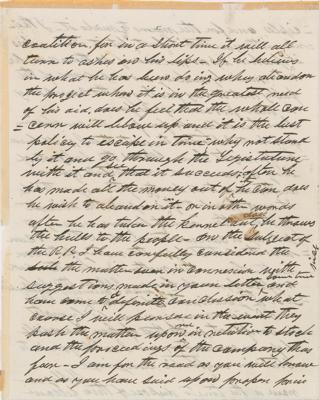 coalition for in a short time it will all
turn to ashes on his lips - If he believs
in what he has been doing why abandon
the project when it is in the greatest need
of his aid, does he feel that the whole con
= cern will blow up and it is the best
policy to escape in time why not stand
by it and go through the Legislature
with it and see that it succeeds, after he
has made all the money out of he can does
he wish to abandon it - or in other words
after he has taken the kennel out, he throws
the hulls to the people - on the subject of
the R.R. I have carefully considered the
the matter in connexion with
suggestions made in your letter and
have come to definite conclusion what
corse I will persue in the event they
push the matter upon me in relation to stock
and the proceedings of the company thus
far - I am for the road as you well know
and as you have said upon proper